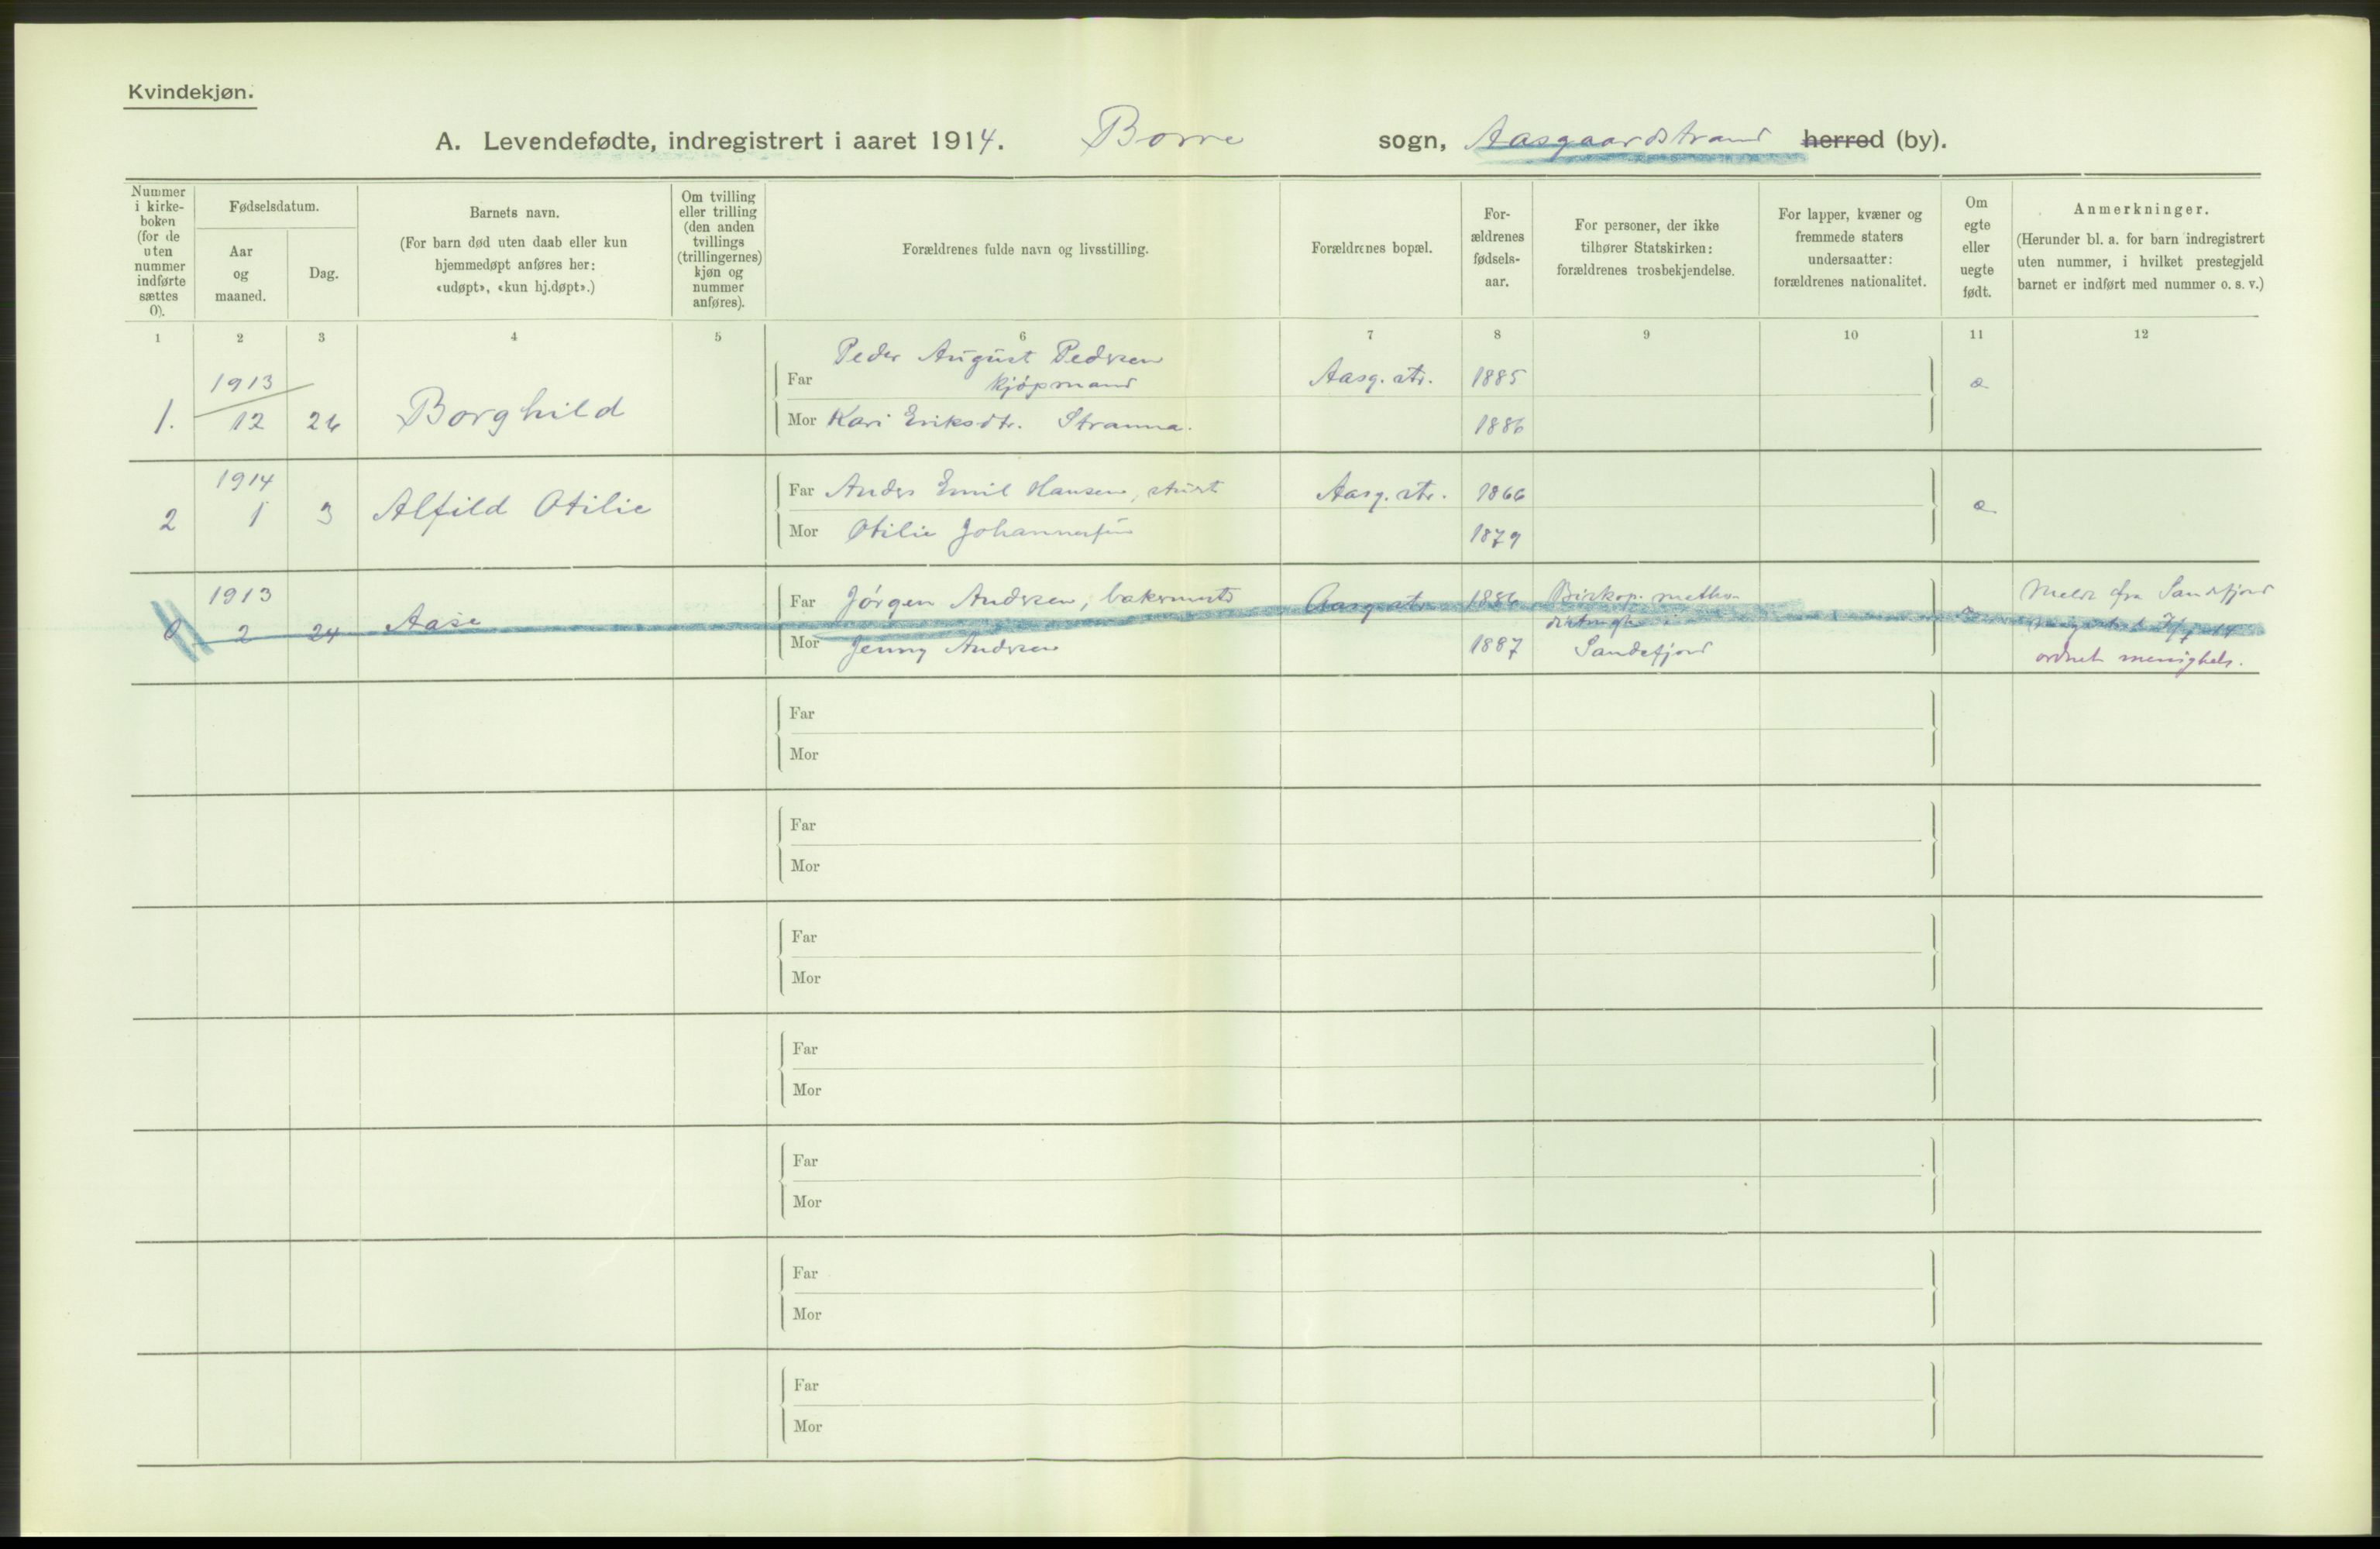 Kvindekjøn.
A. Levendefødte, indregistrert i aaret 1914. Borre sogn, Aasgaardstrand herred (by).
Nummer
i kirke-
boken
(for de
uten
nummer
indførte
sættes
0).
Fødselsdatum.
Aar
og
maaned.
Dag.
Barnets navn.
(For barn død uten daab eller kun
hjemmedøpt anføres her:
«udøpt», «kun hj.døpt».)
Om tvilling
eller trilling
(den anden
tvillings
(trillingernes)
kjøn og
nummer
anføres).
Forældrenes fulde navn og livsstilling.
Forældrenes bopæl.
For-
ældrenes
fødsels-
aar.
For personer, der ikke
tilhører Statskirken:
forældrenes trosbekjendelse.
For lapper, kvæner og
fremmede staters
undersaatter:
forældrenes nationalitet.
Om
egte
eller
uegte
født.
Anmerkninger.
(Herunder bl. a. for barn indregistrert
uten nummer, i hvilket prestegjeld
barnet er indført med nummer o. s. v.)
1 2 3 4 5 6 7 8 9 10 11 12
1. 1913 12 26 Borghild
Far Peder August Pedersen
kjøpmand Aasg. str. 1885 æ
Mor Kari Eriksdtr. Stranna. 1886
2 1914 1 3 Alfild Otilie
Far Anders Emil Hansen, Aasg. str. 1866 æ
Mor Otilie Johannesen 1879
0 1913 2 24 Aase
Far Jörgen Andersen, Aasg. str. 1886 Biskop. metho-
Mor Jenny Andersen 1887 Sandefjord
Meldt fra Sandefjord
ordnet menighets.
Far
Mor
Far
Mor
Far
Mor
Far
Mor
Far
Mor
Far
Mor
Far
Mor